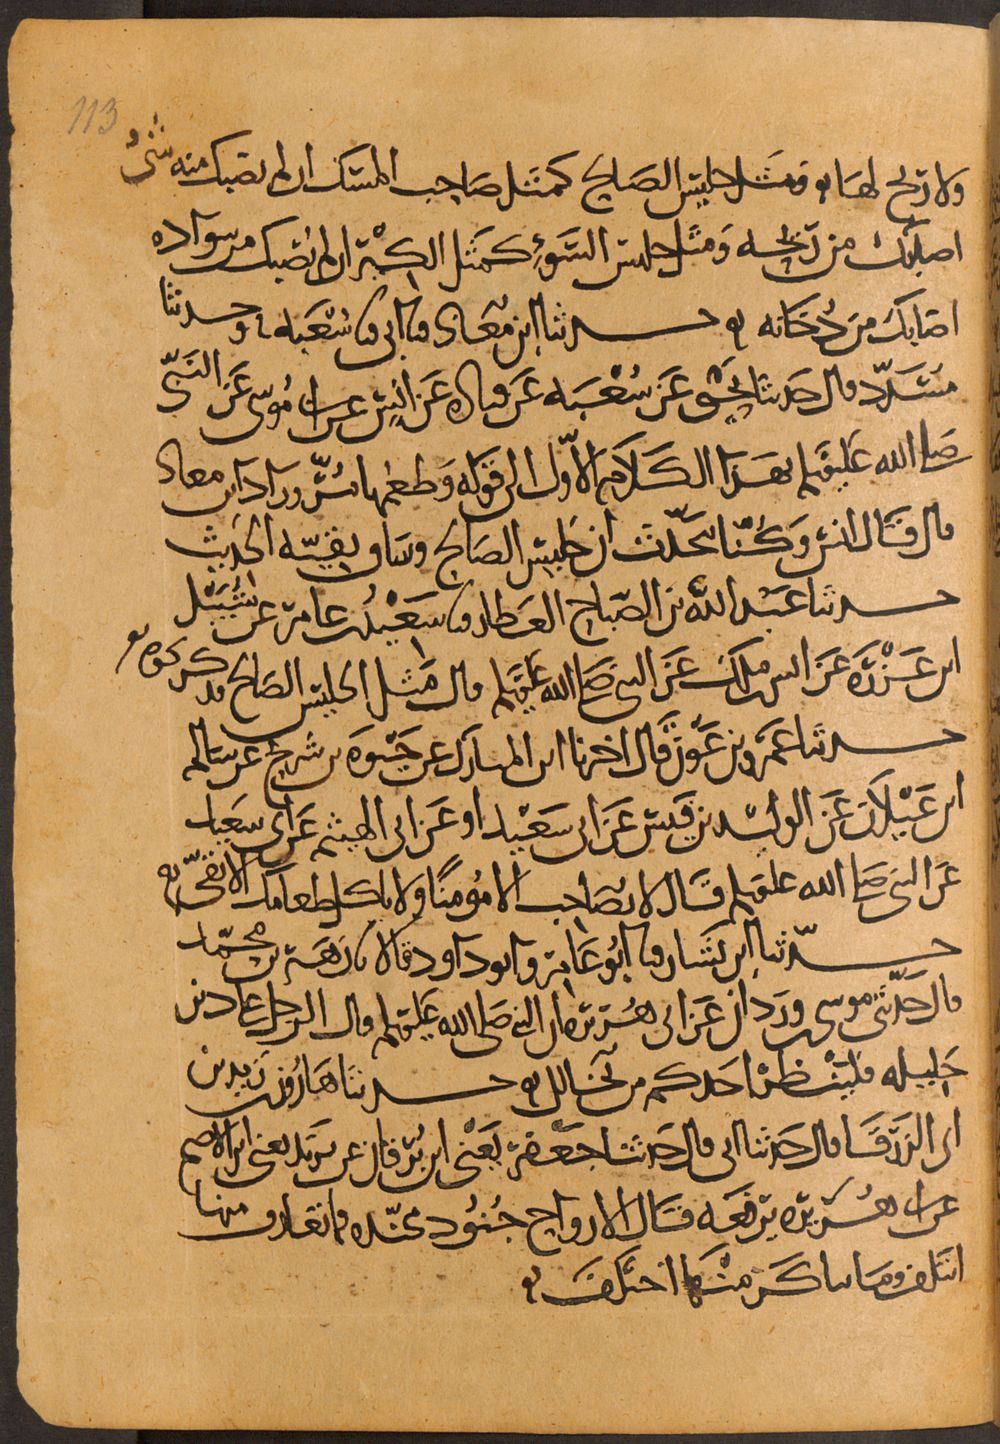 113
ولا ريح لها ومثل جليس الصالح كمثل صاحب المسك ان لم يصبك منه شيء
اصابك من ريحه ومثل جليس السوء كمثل الكير ان لم يصبك من سواده
اصابك من دخانه حدثنا ابن معاذ نا ابي نا شعبه وحدثنا
مسدد قال حدثنا يحيى عن شعبه عن قتاده عن انس عن ابي موسى عن النبي
صلى الله عليه وسلم بهذا الكلام الاول الى قوله وطعمها مر وزاد ابن معاذ
قال قال انس وكنا نتحدث ان جليس الصالح وساق بقيه الحديث
حدثنا عبد الله بن الصباح العطار نا سعيد بن عامر عن شبيل
ابن عزره عن انس بن ملك عن النبي صلى الله عليه وسلم قال مثل الجليس الصالح فذكر نحوه
حدثنا عمرو بن عون قال اخبرنا ابن المبارك عن حيوه بن شريح عن سالم
ابن غيلان عن الوليد بن قيس عن ابي سعيد او عن ابي الهيثم عن ابي سعيد
عن النبي صلى الله عليه وسلم قال لا تصاحب الا مومنا ولا ياكل طعامك الا تقي
حدثنا ابن بشار نا ابو عامر وابو داود قالا نا زهير بن محمد
قال حدثني موسى بن وردان عن ابي هريره ان النبي صلى الله عليه وسلم قال الرجل على دين
خليله فلينظر احدكم من يخالل حدثنا هارون بن زيد بن
ابي الزرقا قال حدثنا ابي قال حدثنا جعفر يعني ابن برقان عن يزيد يعني ابن الاصم
عن ابي هريره يرفعه قال الارواح جنود مجنده فما تعارف منها
ائتلف وما تناكر منها اختلف